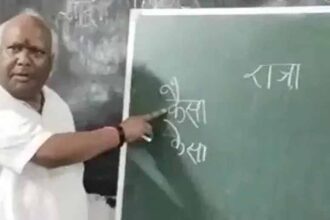 राजा
कैसा
केसा